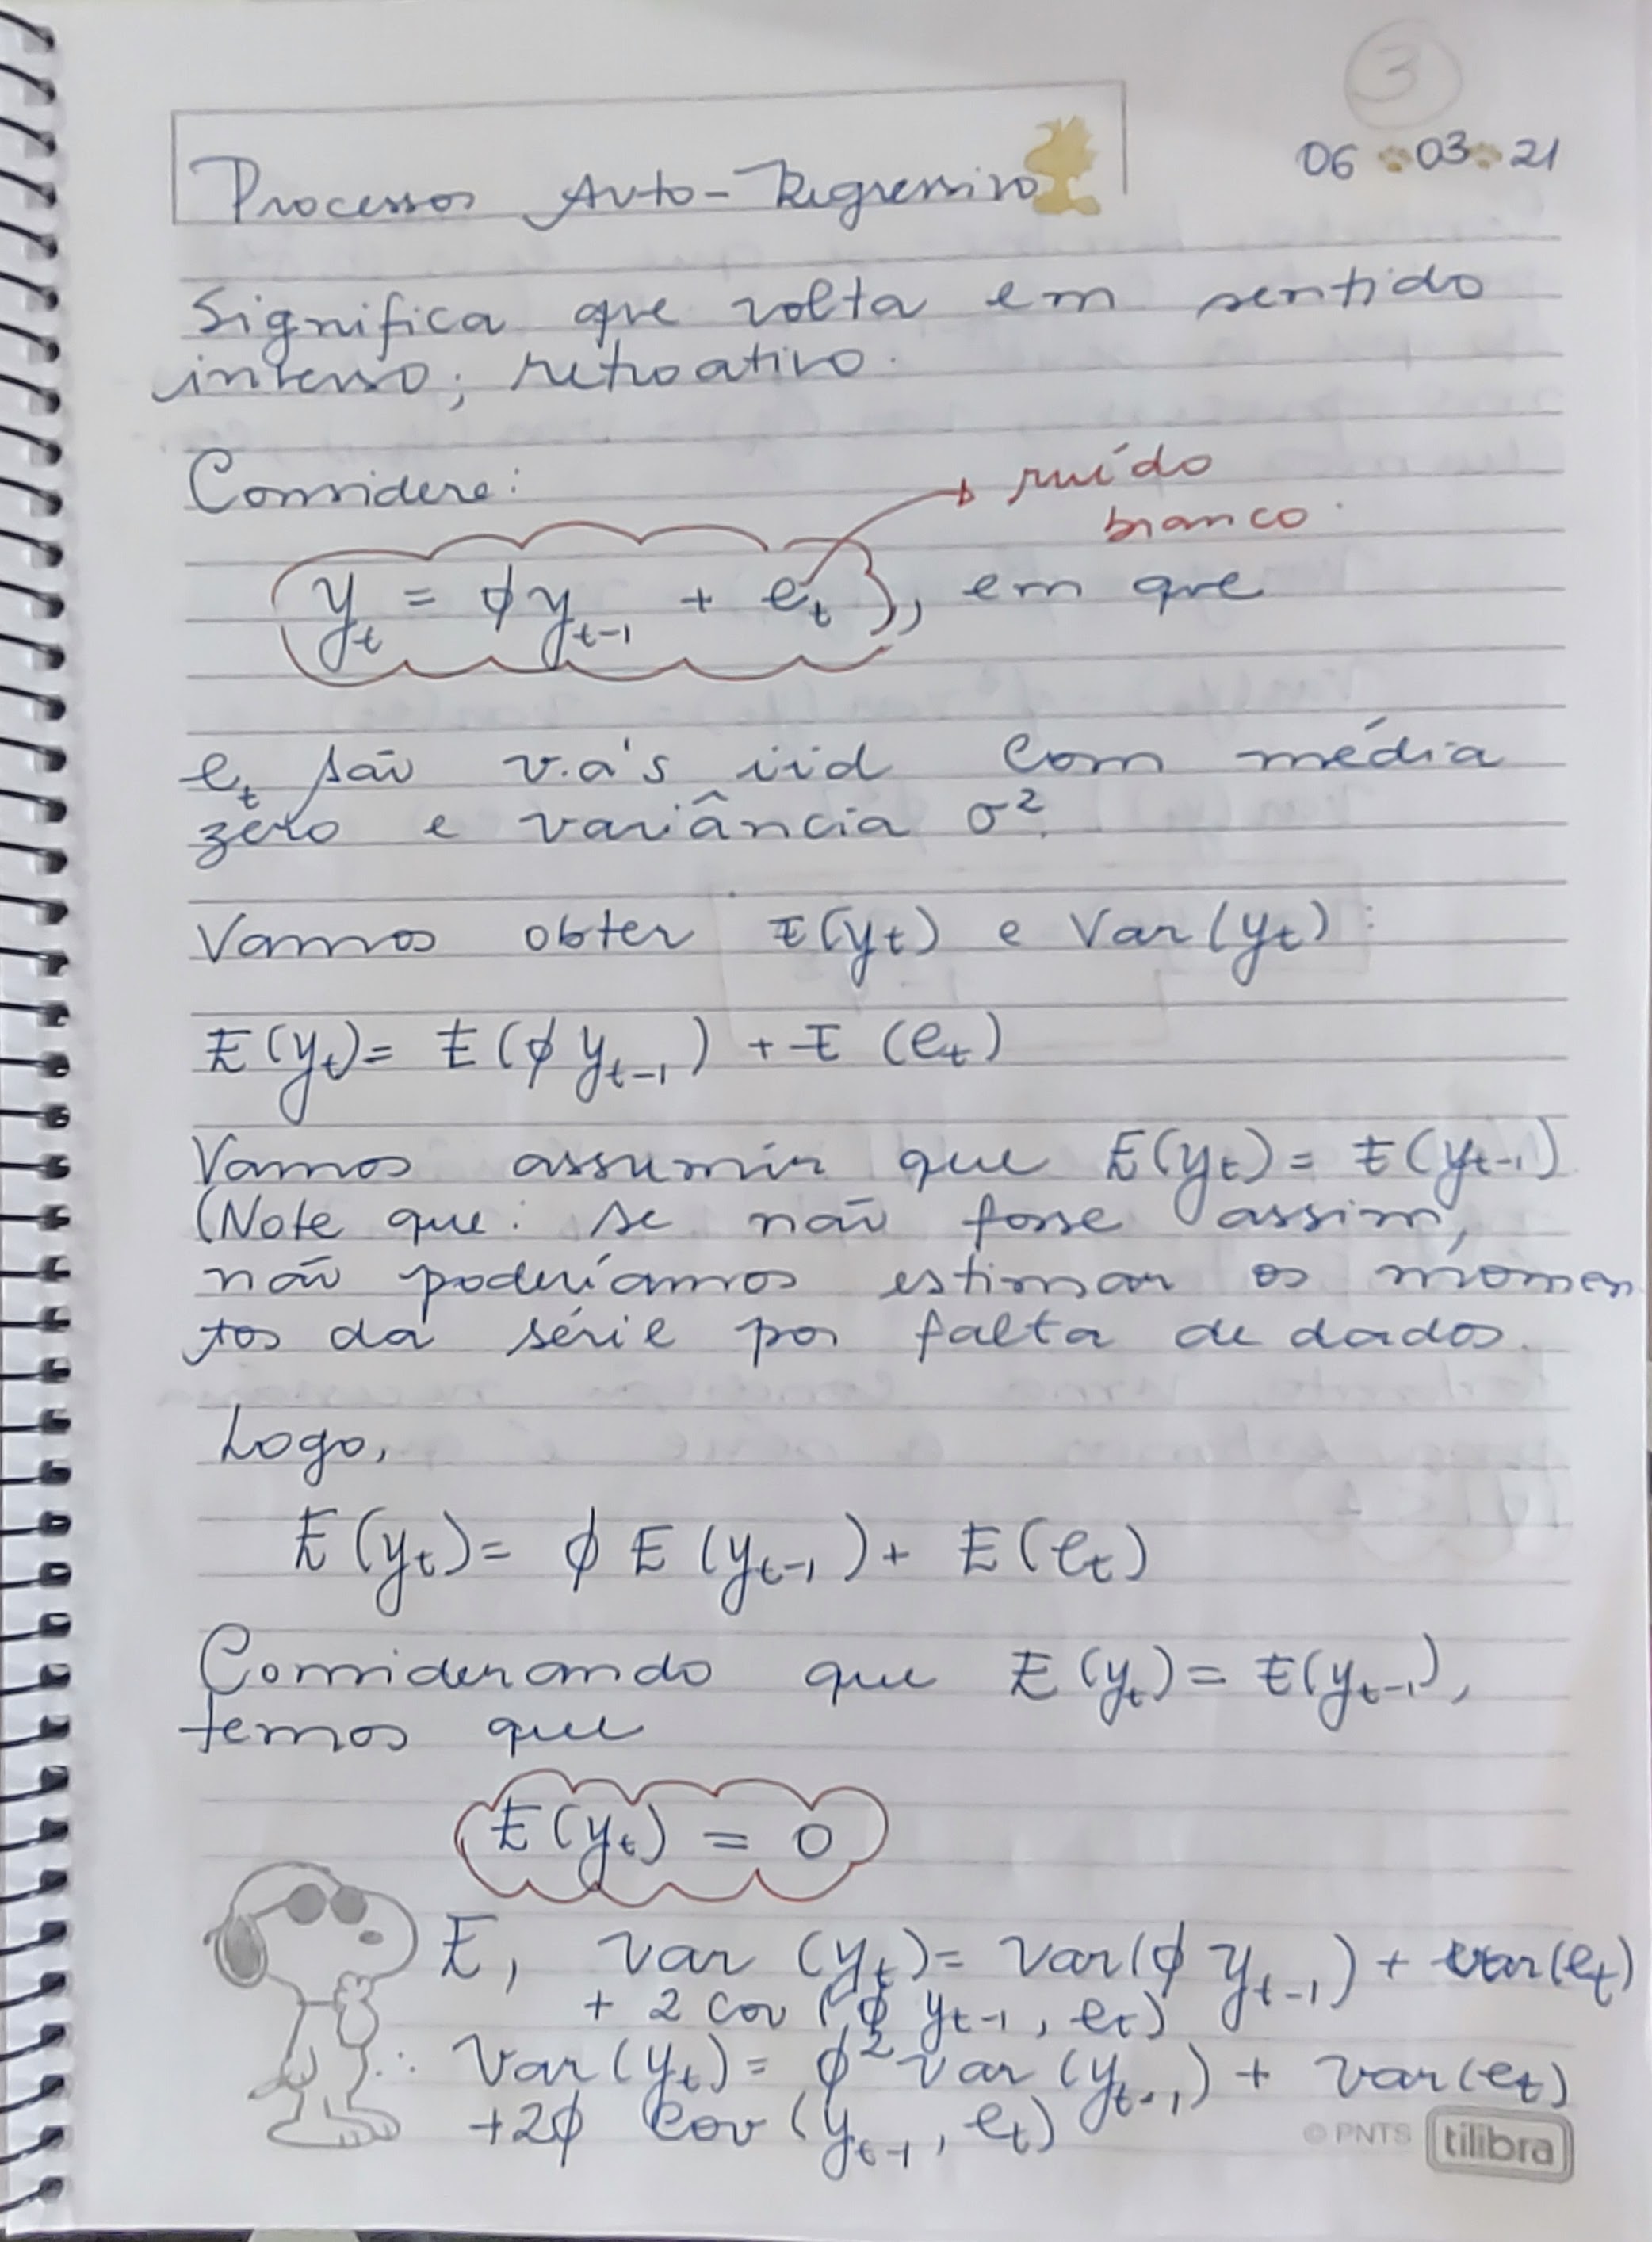 3
06 03 21
Processos Auto-Regressivo
Significa que volta em sentido
inverso; retroativo.
Considere:
ruído
branco.
y_t = φ y_{t-1} + e_t, em que
e_t são v.a's iid com média
zero e variância σ².
Vamos obter E(y_t) e Var(y_t):
E(y_t) = E(φ y_{t-1}) + E(e_t)
Vamos assumir que E(y_t) = E(y_{t-1})
(Note que: se não fosse assim,
não poderíamos estimar os momen
tos da série por falta de dados.
Logo,
E(y_t) = φ E(y_{t-1}) + E(e_t)
Considerando que E(y_t) = E(y_{t-1}),
temos que
E(y_t) = 0
E, var (y_t) = var(φ y_{t-1}) + var(e_t)
+ 2 cov (φ y_{t-1}, e_t)
∴ Var(y_t) = φ² var (y_{t-1}) + var(e_t)
+2φ cov (y_{t-1}, e_t)
© PNTS tilibra